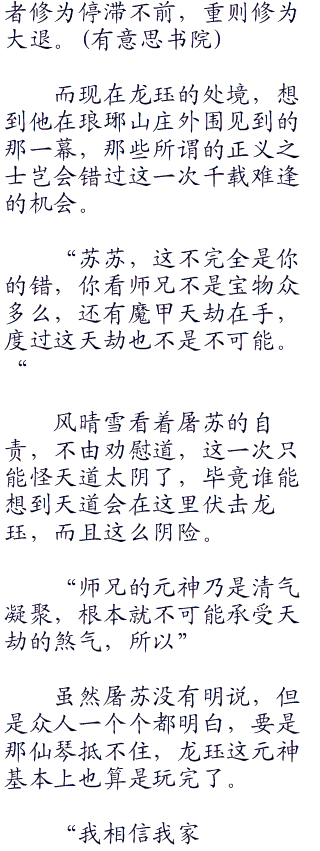 者修为停滞不前，重则修为
大退。(有意思书院)
而现在龙珏的处境，想
到他在琅琊山庄外围见到的
那一幕，那些所谓的正义之
士岂会错过这一次千载难逢
的机会。
“苏苏，这不完全是你
的错，你看师兄不是宝物众
多么，还有魔甲天劫在手，
度过这天劫也不是不可能。
“
风晴雪看着屠苏的自
责，不由劝慰道，这一次只
能怪天道太阴了，毕竟谁能
想到天道会在这里伏击龙
珏，而且这么阴险。
“师兄的元神乃是清气
凝聚，根本就不可能承受天
劫的煞气，所以”
虽然屠苏没有明说，但
是众人一个个都明白，要是
那仙琴抵不住，龙珏这元神
基本上也算是玩完了。
“我相信我家